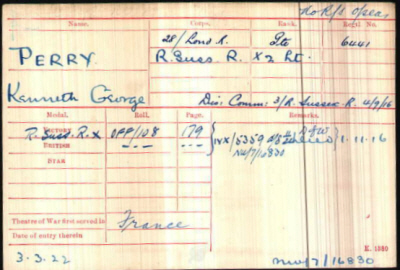 Name. Corps. Rank. Regtl. No.
28/Lond R. Pte 6441
PERRY. R. Suss. R. X 2 Lt.
Kenneth George
Dis: Comm: 3/R. Sussex R. 4/9/16
Medal. Roll. Page. Remarks.
VICTORY R. Suss. R. X OFF/108 179 IVX/5359 1.11.16
BRITISH -.- -.- NW/7/16830
STAR
Theatre of War first served in France
Date of entry therein
3.3.22 NW/7/16830
K. 1380